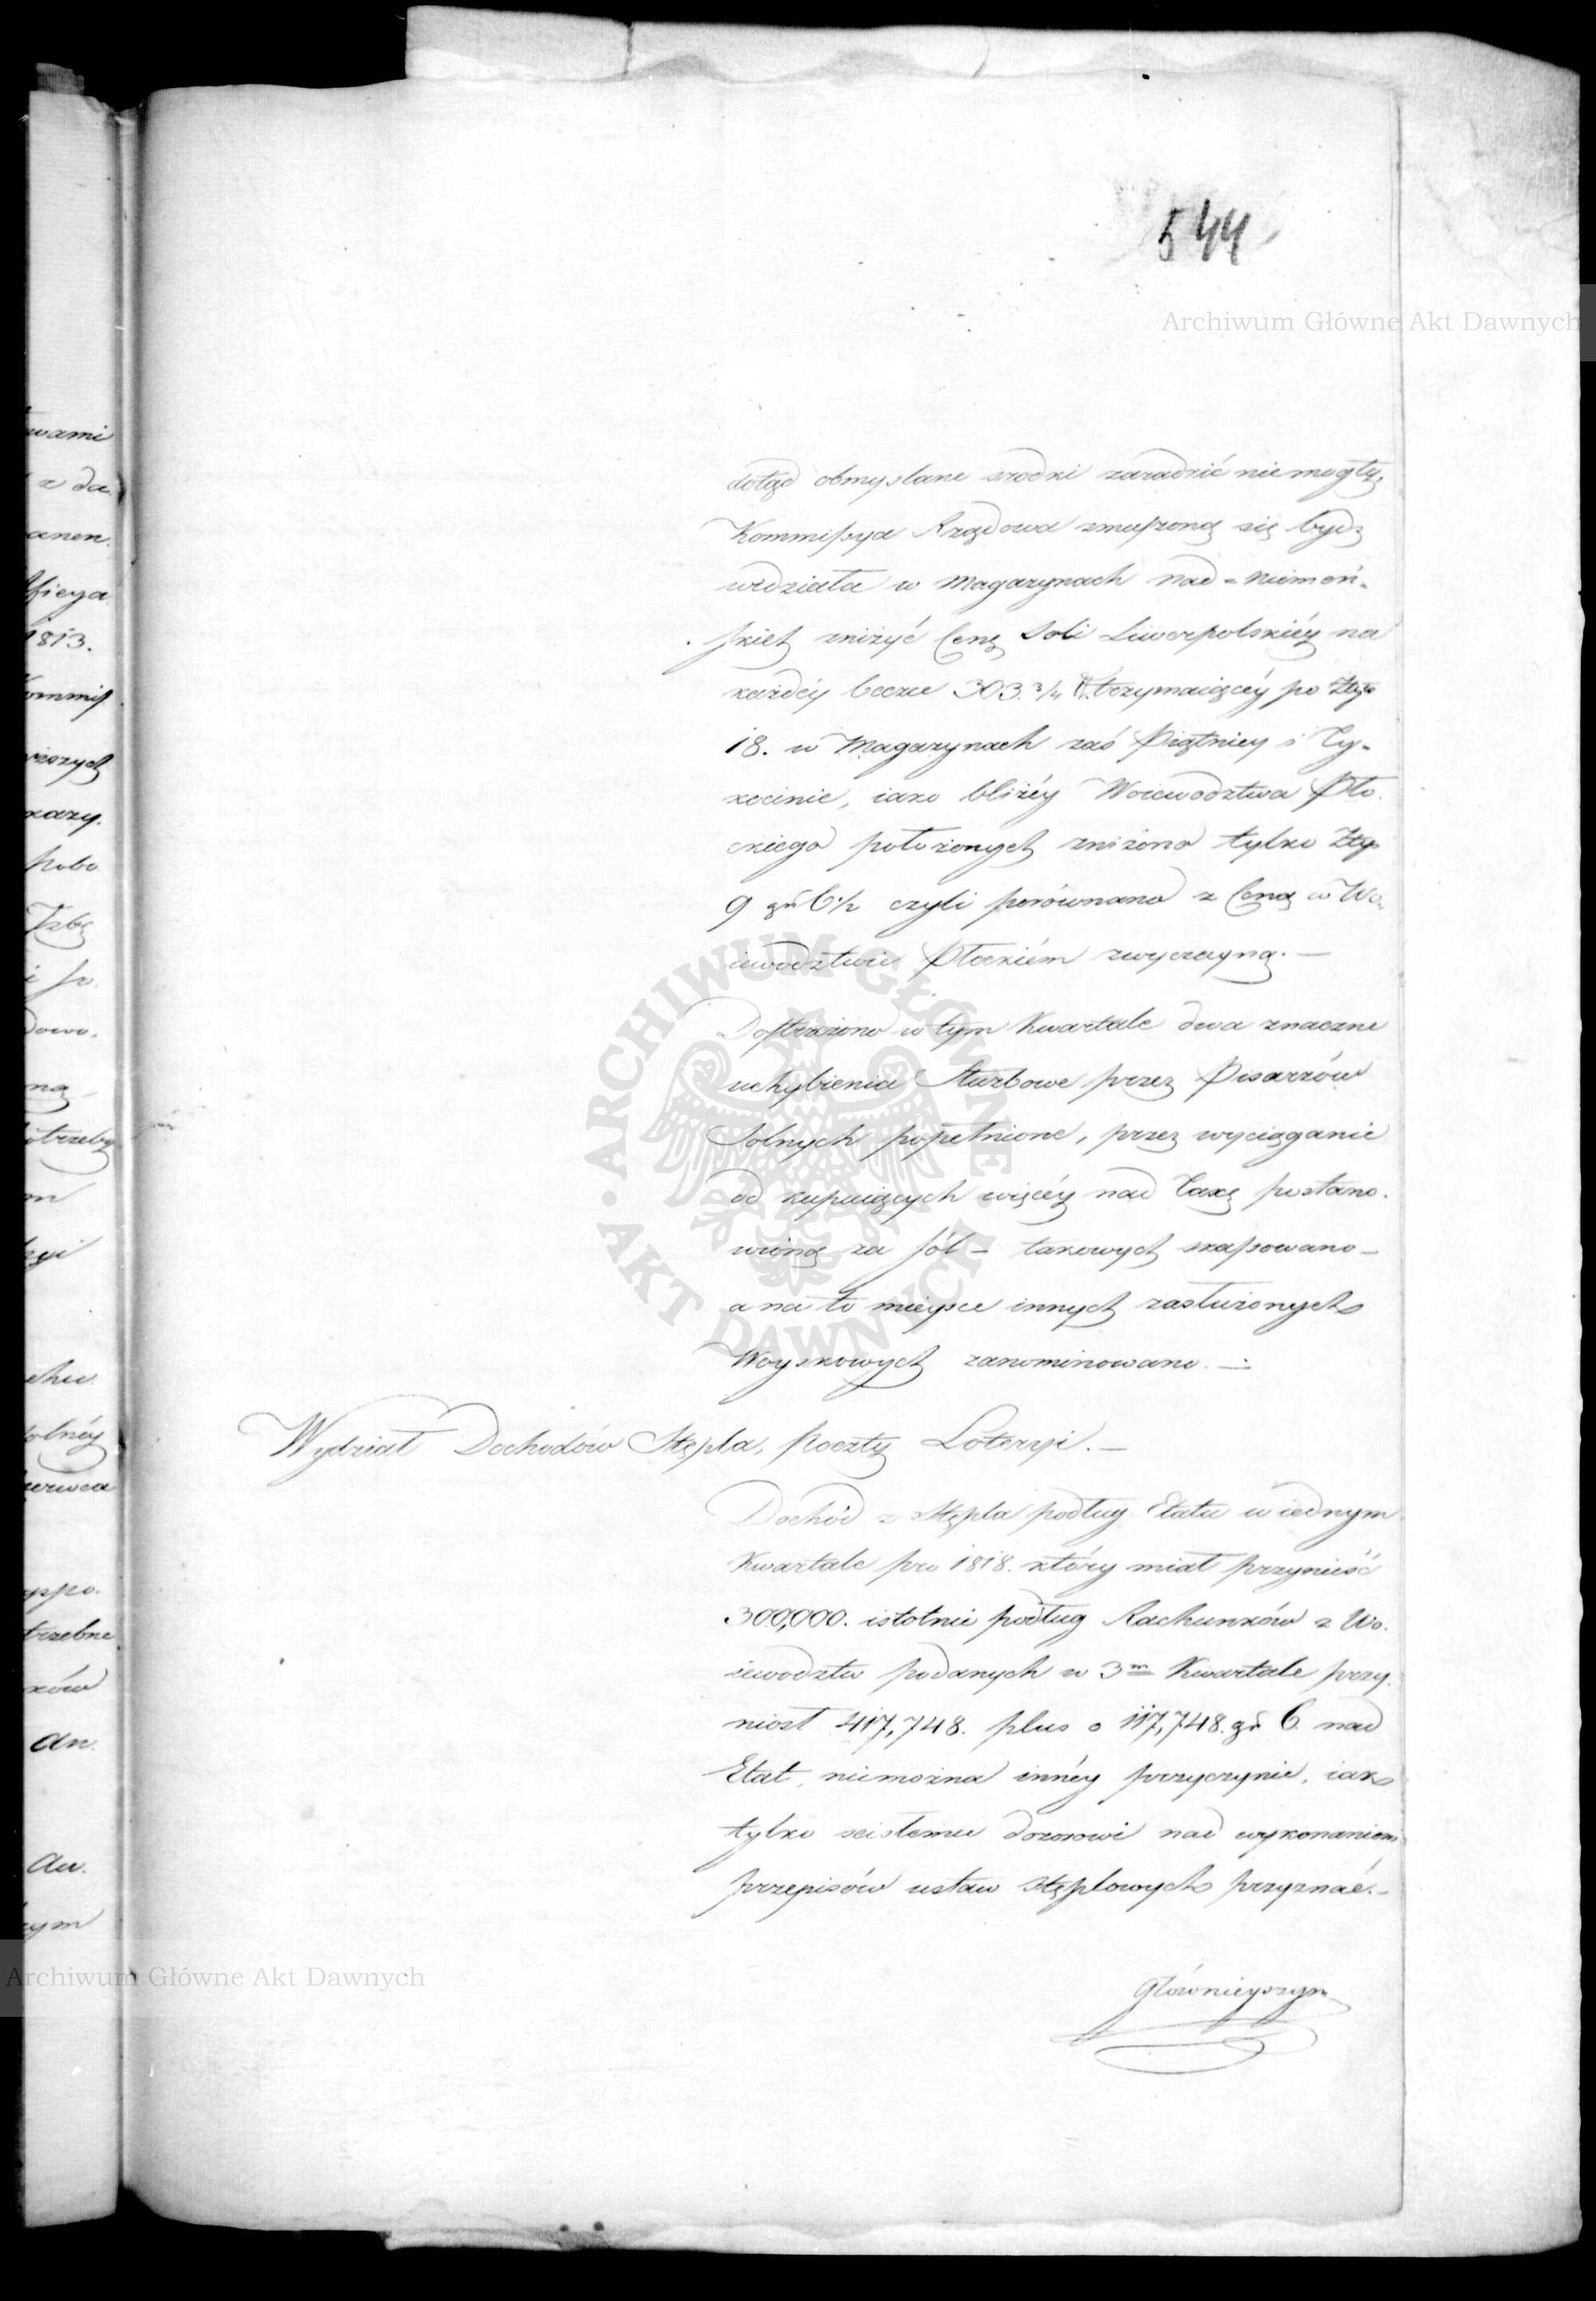 544
Archiwum Główne Akt Dawnych
dotąd obmyslane srodki zaradzić niemogły,
Kommissya Rządowa zmuszoną się bydz
widziała w Magazynach nad=Niemeń-
skich zniżyć Cenę Soli Liwerpolskiéy na
każdéy beczce 303.¾ ℔. trzymaiącéy po Złp
18. w Magazynach zaś Piątnicy i Ty-
kocinie, iako bliżéy Woiewodztwa Pło-
ckiego położonych zniżono tylko Złp
9 gr 6½ czyli porównano z Ceną w Wo-
iewodztwie Płockiém zwyczayną.—
Dostrzeżono w tym Kwartale dwa znaczne
uchybienia Służbowe przez Pisarzów
Solnych popełnione, przez wyciąganie
od kupuiących więcéy nad Taxę postano-
wioną za sól – takowych skassowano –
a na to mieysce innych zasłużonych
Woyskowych zanominowano.—
Wydział Dochodów Stępla, Poczty Loteryi.—
Dochód z Stępla podług Etatu w iednym
Kwartale pro 1818. który miał przynieść
300,000. istotnie podług Rachunków z Wo-
iewodztw podanych w 3m Kwartale przy-
niosł 417,748. plus o 117,748. gr 6. nad
Etat, niemożna innéy przyczynie, iak
tylko scisłemu dozorowi nad wykonaniem
przepisów ustaw stęplowych przyznać.—
Głównieyszym
Archiwum Główne Akt Dawnych
ARCHIWUM GŁÓWNE AKT DAWNYCH
wami
z da
anen.
1813.
Kommiss
kazy.
pobo
Izbę
dowo.
ną
trzeby
m
olnéy
zerwca
trzebne
ków
an.
au.
ym